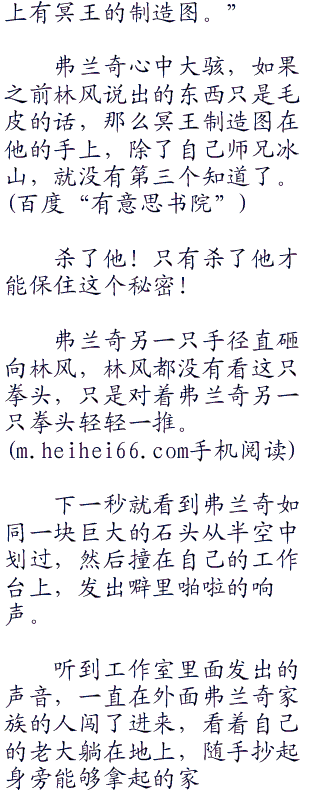 上有冥王的制造图。”
弗兰奇心中大骇，如果
之前林风说出的东西只是毛
皮的话，那么冥王制造图在
他的手上，除了自己师兄冰
山，就没有第三个知道了。
(百度“有意思书院”)
杀了他！只有杀了他才
能保住这个秘密！
弗兰奇另一只手径直砸
向林风，林风都没有看这只
拳头，只是对着弗兰奇另一
只拳头轻轻一推。
(m.heihei66.com手机阅读)
下一秒就看到弗兰奇如
同一块巨大的石头从半空中
划过，然后撞在自己的工作
台上，发出噼里啪啦的响
声。
听到工作室里面发出的
声音，一直在外面弗兰奇家
族的人闯了进来，看着自己
的老大躺在地上，随手抄起
身旁能够拿起的家